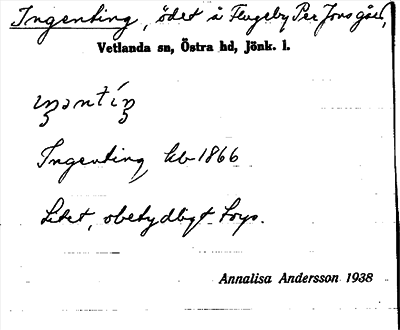 Ingenting, ödet å Flugeby Per Jons gård,
Vetlanda sn, Östra hd, Jönk. l.
Ingenting kb 1866
Litet, obetydligt torp.
Annalisa Andersson 1938